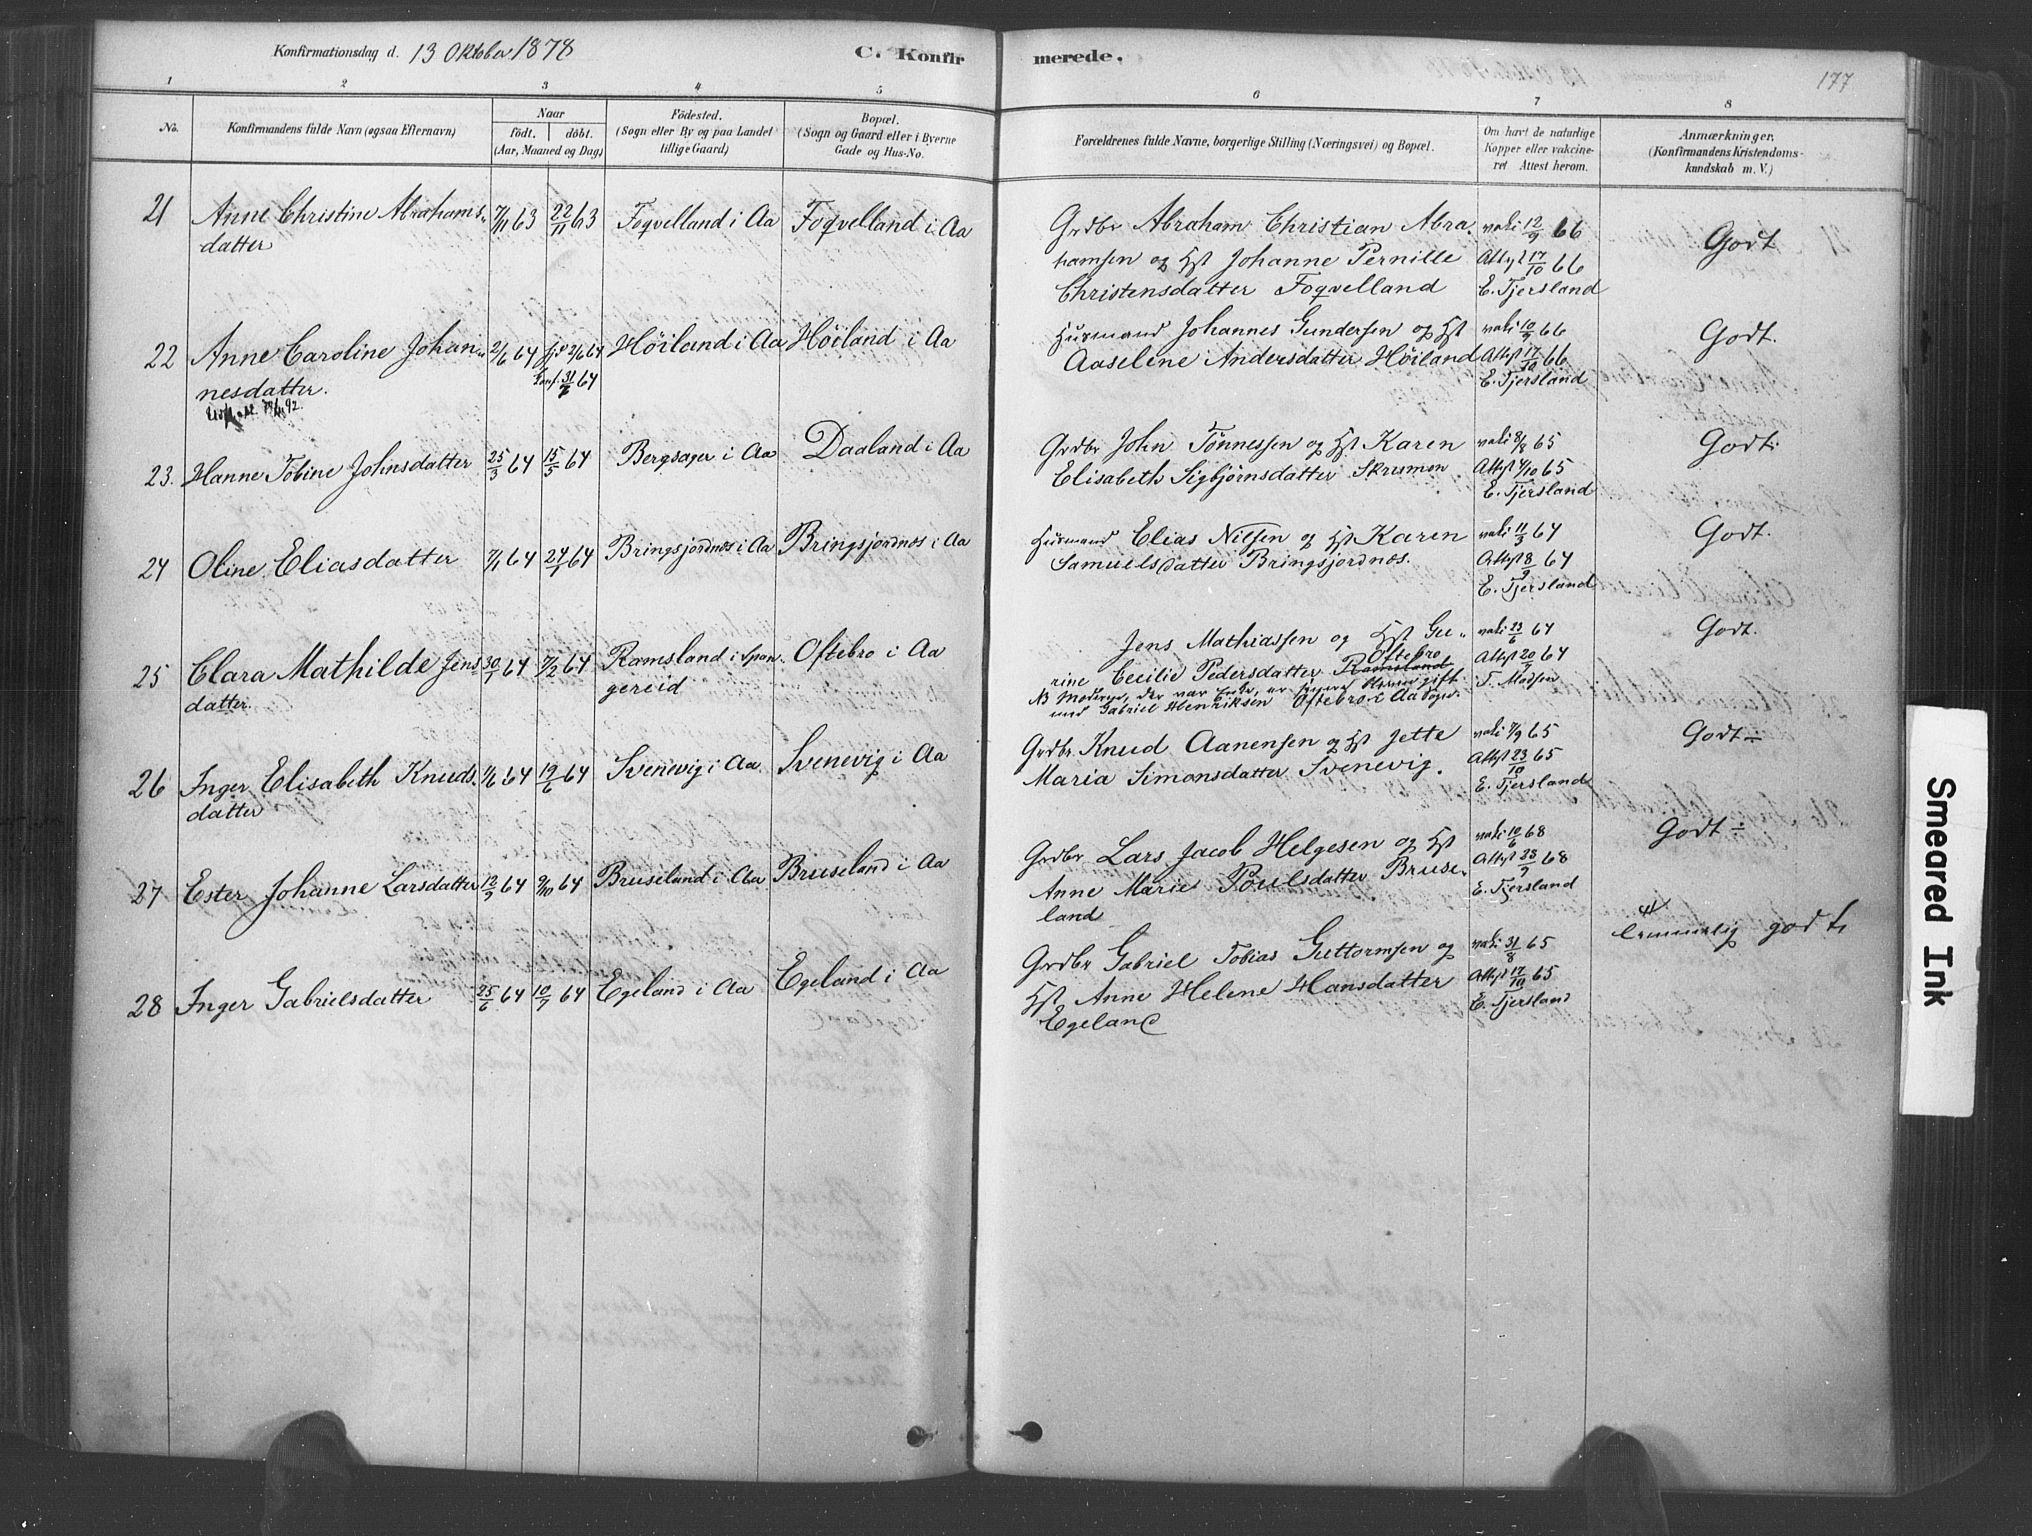 Konfirmationsdag d. 13 Oktober 1878
C. Konfir
merede.
177
1 2 3 4 5 6 7 8
No.
Konfirmandens fulde Navn (ogsaa Efternavn)
Naar
födt. döbt.
(Aar, Maaned og Dag)
Födested.
(Sogn eller By og paa Landet
tillige Gaard)
Bopæl.
(Sogn og Gaard eller i Byerne
Gade og Hus-No.
Forældrenes fulde Navne, borgerlige Stilling (Næringsvei) og Bopæl.
Om havt de naturlige
Kopper eller vakcine-
ret Attest herom.
Anmærkninger.
(Konfirmandens Kristendoms-
kundskab m. V.)
21 Anne Christine Abrahams- 7/11 63 22/11 63 Foqvelland i Aa Foqvelland i Aa
datter
Grdbr Abraham Christian Abra- vaki 12/9 66 Godt
hamsen og Hst Johanne Pernille Attest 17/10 66
Christensdatter Foqvelland E. Tjersland
22 Anne Caroline Johan- 2/6 64 hjd 2/6 64 Höiland i Aa Höiland i Aa
nesdatter. 31/7 64
92.
Husmand Johannes Gundersen og Hst vaki 10/9 66 Godt.
Aaselene Andersdatter Höiland Attest 17/10 66
E. Tjersland
23. Hanne Tobine Johnsdatter 25/3 64 15/5 64 Bergsager i Aa Daaland i Aa
Grdbr John Tönnessen og Hst Karen vaki 8/8 65 Godt.
Elisabeth Sigbjörnsdatter Skrumon Attest 4/10 65
E. Tjersland
24 Oline Eliasdatter 7/1 64 24/1 64 Bringsjordnæs i Aa Bringsjordnæs i Aa
Husmand Elias Nilsen og Hst Karen vaki 11/3 64 Godt.
Samuelsdatter Bringsjordnæs. Attest 8/9 64
E. Tjersland
25 Clara Mathilde Jens- 30/1 64 7/2 64 Ramsland i Span- Oftebro i Aa
datter. gereid
Jens Mathiassen og Hst Gu- vaki 23/6 64 Godt.
rine Cecilie Pedersdatter Ramsland Oftebro Attest 20/7 64
NB Moderen, der var Enke, er gift T. Madsen
med Gabriel Henriksen Oftebro i Aa Sogn.
26 Inger Elisabeth Knuds- 1/6 64 19/6 64 Svenevig i Aa Svenevig i Aa
datter
Grdbr. Knud Aanensen og Hst Jette vaki 7/9 65 Godt -
Maria Simonsdatter Svenevig. Attest 23/10 65
E. Tjersland
27 Ester Johanne Larsdatter 12/9 64 9/10 64 Bruseland i Aa Bruseland i Aa
Grdbr Lars Jacob Helgesen og Hst vaki 10/6 68 Godt -
Anne Marie Poulsdatter Bruse- Attest 23/7 68
land E. Tjersland
28 Inger Gabrielsdatter 25/6 64 10/7 64 Egeland i Aa Egeland i Aa
Grdbr Gabriel Tobias Guttormsen og vaki 31/8 65 godt.
Hst Anne Helene Hansdatter Attest 17/10 65
Egeland E. Tjersland
Smeared Ink